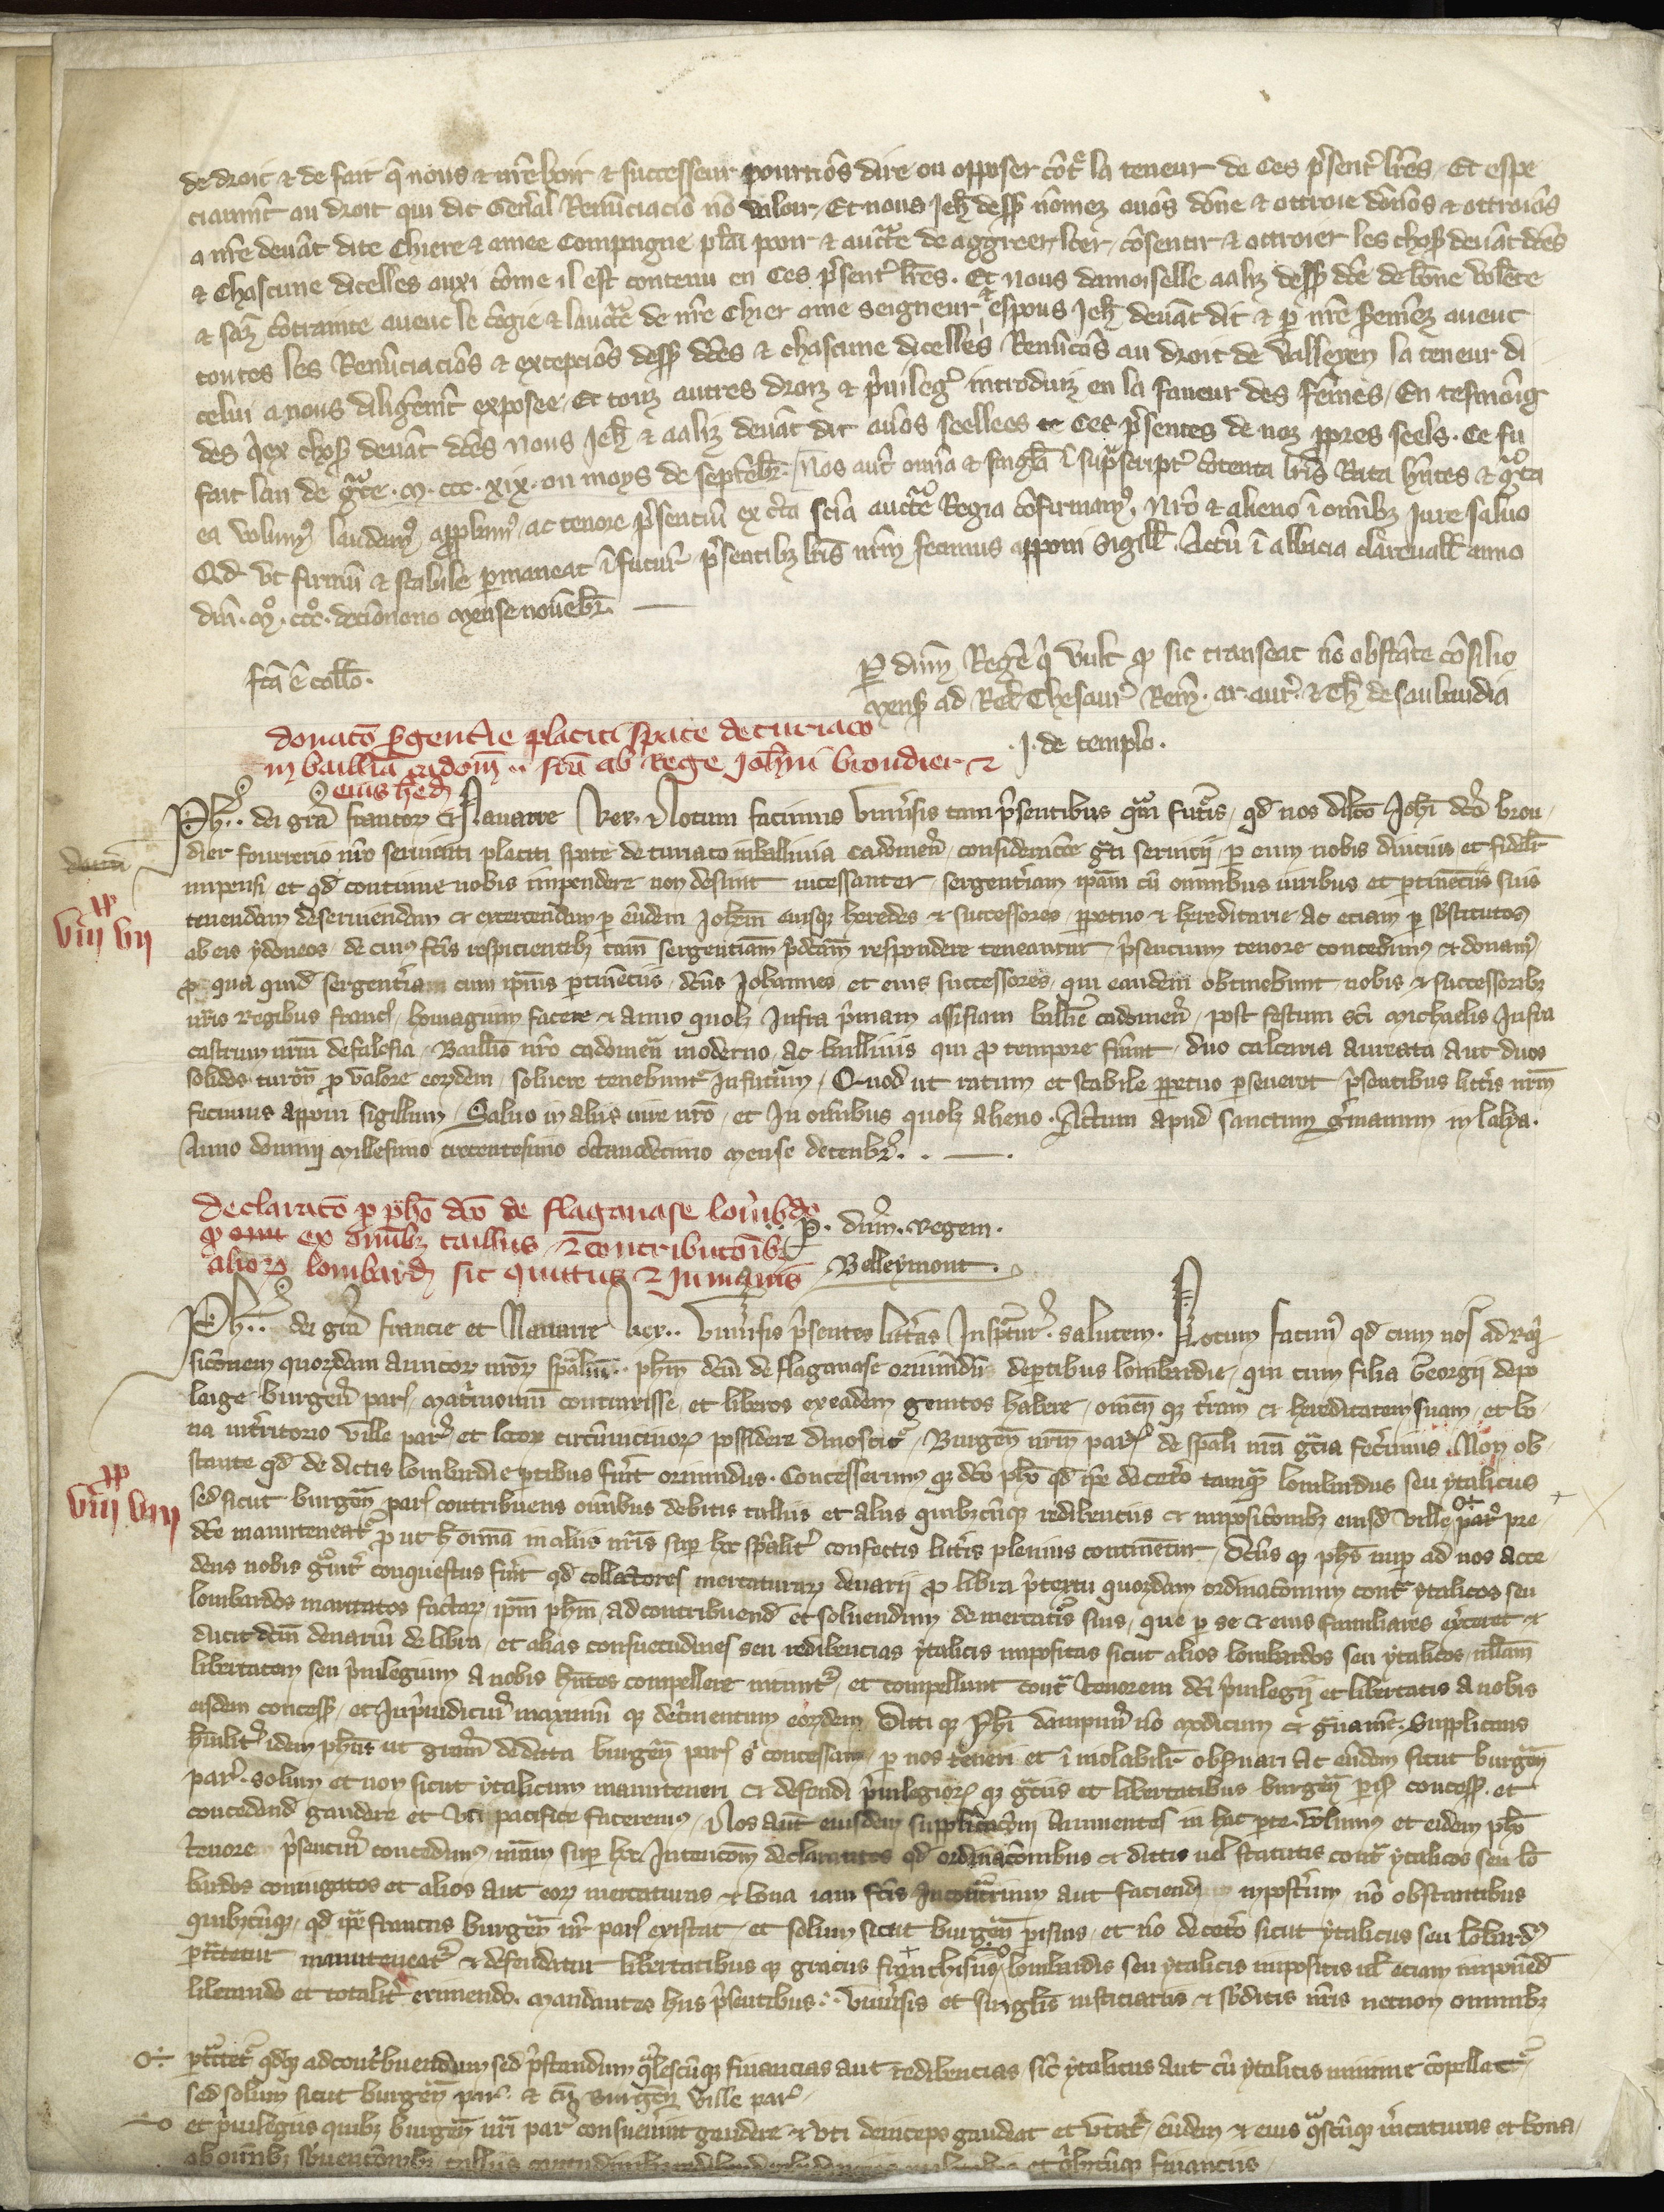 de droit & de fait q̄ nous & nr̄e hoir & successeur pourriōs dire ou opposer cōt̃ la teneur de Ces p̃sent̃ lr̄es / Et espe
ciaumt̄ au droit qui dit Gen̄al Renūciaciō nō valoir / Et nous Jeh̃ dess̃ nōmez auōs dōne & ottroie dōnōs & ottroiōs
a nr̄e deuāt dite Chiere & amee Compaigne pooir & auct̄e de aggreer / cōsentir & ottroier les chos̃ deuāt dc̄es
& Chascune dicelles auxi cōme il est contenu en Ces p̃sent̃ lr̄es . Et nous damoiselle aaliz dess̃ dc̄e de bōne volēte
& sāz cōtrainte auuec le cōgie & lauct̄e de nr̄e Chier ame seigneur & espous Jeh̃ deuāt dit & p̱ nr̄e sermēz auuec
toutes les Renūciaciōs & excepciōs dess̃ dc̄es & chascune dicelles Renūcōs au droit de Valleyen la teneur di
celui a nous diligēmt̄ exposee / Et touz autres droiz & p̃uileg̃ introduiz en la faueur des fēmes / En tesmoīg
des q̄ex chos̃ deuāt dc̄es nous Jeh̃ & aaliz deuāt dit auōs seellees Ces p̃sentes de noz p̱pres seels . Ce fu
fait lan de gr̃ce . M . ccc . xix . ou moys de septēbr̃ . Nos aut̄ omīa & singl̄a ī sup̃script̃ cōtenta lr̄is Rata hn̄tes & gr̃ta
ea volum⁹ laudam⁹ app̱bam⁹ ac tenore p̃sentiū ex c̄ta scīa auct̄e Regia cōfirmam⁹ . Nr̄o & alieno ī omībz Jure saluo
Qd vt firmū & stabile p̱maneat ī futur̃ p̃sentibz lr̄is nr̄m fecimus apponi Sigill̃ . Actū ī abbacia clareuall̃ anno
dn̄i . M̊ . ccc̊ . decīonono Mense nouēbr̃ .
fc̄a ē coll̄o .
P̱ dn̄m Regē q̄ vult qͦ sic transeat nō obstāte cōsilio
Mens̃ ad Rel̃ Thesaur̃ Rem̃ . ar . aur̃ . & Th̃ de sabaudia
. J . de templo .
donac̄o s̱gentie placiti spate de curiaco
in bailliā cadom̃ .. fc̄a ab Rege Joh̄ni brondier &
eius hed̃
Ph̃ .. dei grā francor̃ & Nauarre Rex . Notum facimus Vniũsis tam p̃sentibus q̃m fut̃is / qd̄ nos dilc̄o Joh̄i dc̄o bron
dier fourrerio nr̄o seruienti placiti spate de curiaco in balliuia cadomeñ / consideracōe gr̃ti seruicij p̱ eum nobis diucius et fidelr̃
impensi et qd̄ continue nobis impendere non desinit incessanter / sergenteriam ip̄am cū omnibus iuribus et p̱tinēciis suis
tenendam deseruiendam & exercendam p̱ eūdem Joh̄em eiusq̄ heredes & successores p̱petuo & hereditarie ac eciam p̱ sb̄stitutos
ab eis ydoneos de cui⁹ fc̄is respicientibz tam̄ sergenteriam p̃dc̄am respondere teneantur / p̃sencium tenore concedim⁹ & donam⁹ /
p̱ qua quid̃ sergenteriam cum ip̄ius p̱tinēciis / dc̄us Johannes et eius successores / qui eandem obtinebunt nobis & successoribz
nr̄is Regibus franc̃ / homagium facere & anno quolz Infra p̃mam assisiam ballie cadomeñ / post festum sc̄i Michaelis Infra
castrum nr̄m de falesia / Bailliuo nr̄o cadomeñ moderno / ac balliuis qui p̱ tempore fūint / duo calcaria aureata aut duos
solidos turoñ p̱ valore eorūdem / soluere tenebunt̃ Infutur̃m / Quod ut ratum et stabile p̱petuo p̱seueret p̃sentibus litt̃is nr̄m
fecimus apponi sigillum / Saluo in aliis iure nr̄o / et In om̄ibus quolz alieno . Actum apud sanctum g̃manum in laya .
Anno domini Millesimo trecentesimo Octauodecimo Mense decenbr̃ . .
declarac̄o p̱ ph̄o dc̄o de flaganase lomb̃do
p̱ ex omībz tailliis & contribuc̄oibz
alior̃ lombard̃ sic quittus & Inmunis
P̱ . dn̄m . Regem .
Belleymont .
Ph̃ .. dei grā francie et Nauarre Rex .. Vniũsis p̃sentes litt̃as Inspectur̃ . salutem . Notum facim⁹ qd̄ cum nos ad Req̃
sicōnem quorūdam amicor̃ nr̄or̃ sp̄aliū .. ph̄m dc̄m de flaganase oriūndū de p̱tibus lombardie / qui cum filia Georgij de po
laige burgeñ par̃ / matrimoniū contraxisse / et liberos ex eadem genitos habere / omēm q̄ t̃ram & hereditatem suam / et bo
na in t̃ritorio ville par̃ et locor̃ circūuicinor̃ possidere dinoscit̃ / Burgeñ nr̄m par̃ de sp̄ali nr̄a gr̄cia fec̃imus . Non ob
stante qd̄ de dictis lombardie p̱tibus fūit oriundus . Concesserimus q̄ dc̄o ph̄o qd̄ ip̄e de cet̃o tamq̃ lombardus seu ytalicus
sed sicut burgeñ par̃ contribuens om̄ibus debitis talliis et aliis quibzcūq̄ redibenciis & imposicōnibz eiusd̃ ville par̃ pre
dc̄e manuteneat̃ p̱ut h̄ om̄ia in aliis nr̄is sup̱ hoc sp̄alit̃ confectis litt̃is plenius continētur / Dc̄us q̄ ph̄s nup̱ ad nos acce
dens nobis g̃uit̃ conquestus fūit qd̄ collectores mercaturar̃ denarij p̱ libra p̃textu quorūdam ordinacōnum cont̃ ytalicos seu
lombardos maritatos factar̃ / ip̄m ph̄m / ad contribuend̃ et soluendum de mercat̃is suis / que p̱ se & eius familiares exercet &
ducit dc̄m denariū de libra / et alias consuetudines seu redibencias ytalicis impositas sicut alios lombardos seu ytalicos / nllam
libertatem seu p̃uilegium a nobis hn̄tes compellere nitunt̃ / et compellunt cont̃ tenorem dc̄i p̃uilegij et libertatis a nobis
eisdem concess̃ / et In p̃iudiciū maximū q̄ det̃imentum eorūdem Dicti q̄ Ph̄i dampnū nō modicum & g̃uamē . Supplicans
hūilit̃ idem ph̄us ut gr̄cia de dicta burgeñ par̃ s̱ concessam / p̱ nos teneri et inuiolabilr̃ obs̱uari ac eūdem sicut burgeñ
par̃ . solum et non sicut ytalicum manuteneri & defendi p̃uilegior̃ q̄ gr̄ciis et libertatibus burgeñ par̃ concess̃ . et
concedend̃ gaudere et vti pacifice faceremus / Nos aut̄ eiusdem supplicacōni Annuentes in hac p̱te . volumus et eidem ph̄o
tenore p̃senciū concedimus / nr̄am sup̱ hoc Intencōnem declarantes qd̄ ordinacōnibus & dictis uel statutis cont̃ ytalicos seu lō
bardos coniugatos et alios aut eor̃ mercaturas & bona iam fc̄is In contrarium aut faciend̃ inpost̃um / nō obstantibus
quibzcūq̄ / qd̄ ip̄e francus burgeñ nr̄ par̃ existat / et solum sicut burgeñ p̱isius / et nō de cet̃o sicut ytalicus seu lōbard⁹
p̱tractetur manuteneat̃ & defendatur libertatibus q̄ graciis franchisiis / lombardis seu ytalicis impositis ul̄ eciam imponēd̃
liberando et totalit̃ eximendo . Mandantes hiis p̃sentibus .. vniũsis et singl̄is iusticiariis & sb̄ditis nr̄is necnon omnibz
p̱t̃ctet̃ qdq̄ ad cont̃buendum sed p̃standum q̃lescūq̄ financias aut redibencias sic̄ ytalicus aut cū ytalicis minime cōpellat̃
sed solum sicut burgeñ par̃ & cū burgeñ ville par̃
et p̃uilegiis quibz burgeñ nr̄i par̃ consueuerunt gaudere & vti deinceps gaudeat et vtat̃ / eūdem & eius q̃scūq̄ m̃caturas et bona /
ab om̄ibz sb̄uencōnibz / talliis et q̃bzcūq̄ financiis /